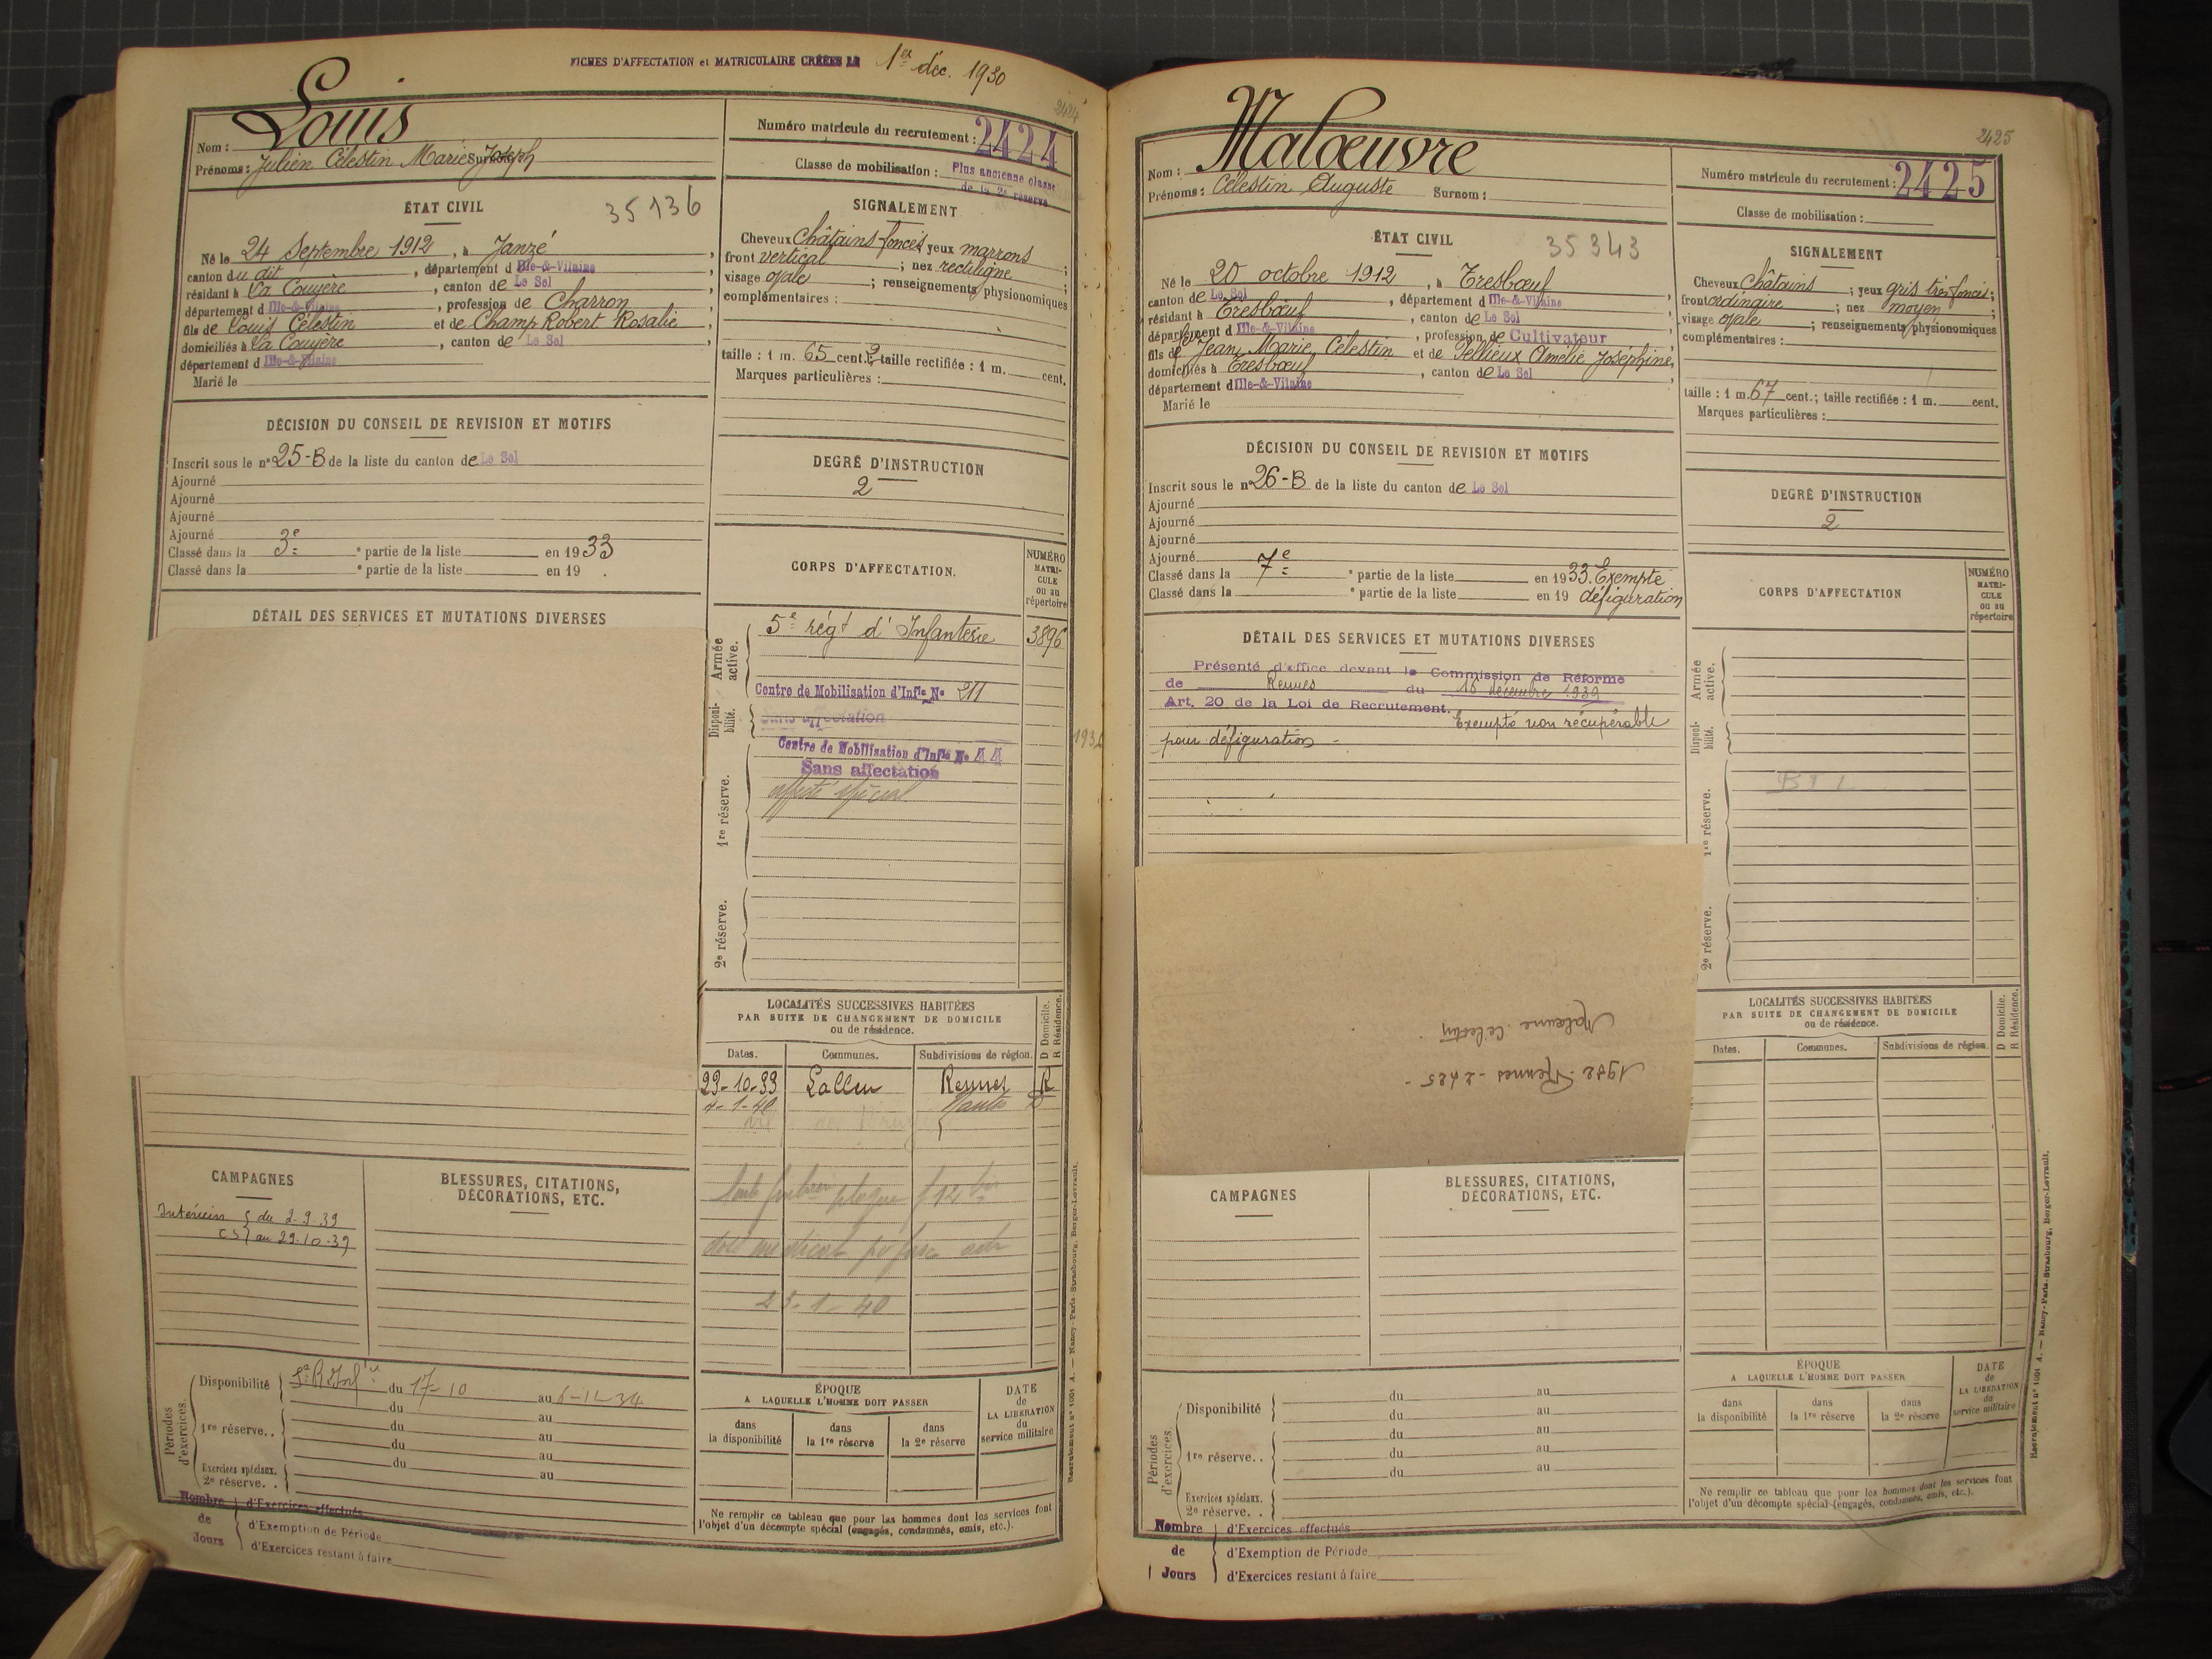 FICHES D'AFFECTATION et MATRICULAIRE CRÉÉES LE 1er déc. 1930
2424
Nom : Louis
Prénoms : Julien Célestin Marie Joseph Surnom
Numéro matricule du recrutement : 2424
Classe de mobilisation : Plus ancienne classe
de la 2e réserve
ÉTAT CIVIL
35136
Né le 24 Septembre 1912, à Janzé,
canton du dit, département d Ille-&-Vilaine,
résidant à La Couyère, canton de Le Sel
département d Ille-&-Vilaine, profession de Charron
fils de Louis Célestin et de Champ Robert Rosalie,
domiciliés à La Couyère, canton de Le Sel
département d Ille-&-Vilaine
Marié le
SIGNALEMENT
Cheveux Châtains foncés yeux marrons;
front vertical; nez rectiligne;
visage ovale; renseignements physionomiques
complémentaires :
taille : 1 m. 65 cent.; taille rectifiée : 1 m. cent.
Marques particulières :
DÉCISION DU CONSEIL DE REVISION ET MOTIFS
Inscrit sous le n° 25-B de la liste du canton de Le Sel
Ajourné
Ajourné
Ajourné
Ajourné
Classé dans la 3e e partie de la liste en 1933
Classé dans la e partie de la liste en 19 .
DEGRÉ D'INSTRUCTION
2
DÉTAIL DES SERVICES ET MUTATIONS DIVERSES
CORPS D'AFFECTATION.
NUMÉRO
MATRI-
CULE
ou au
répertoire
Armée
active.
5e régt d'Infanterie 3896
Centre de Mobilisation d'Infie No 211
Disponi-
bilité.
Sans affectation
Centre de Mobilisation d'Infie No 44
Sans affectation
1re réserve.
affecté spécial
2e réserve.
LOCALITÉS SUCCESSIVES HABITÉES
PAR SUITE DE CHANGEMENT DE DOMICILE
ou de résidence.
D Domicile.
R Résidence.
Dates. Communes. Subdivisions de région.
29-10-33 Lalleu Rennes R
4-1-40 Nantes
23-1-40
CAMPAGNES
Intérieur { du 2-9-39
CS } au 29-10-39
BLESSURES, CITATIONS,
DÉCORATIONS, ETC.
Périodes
d'exercices.
Disponibilité du 17-10 au 6-11-34
du au
1re réserve.. du au
du au
Exercices spéciaux. du au
2e réserve. .
Nombre
de
Jours
d'Exercices effectués
d'Exemption de Période
d'Exercices restant à faire
ÉPOQUE
A LAQUELLE L'HOMME DOIT PASSER
dans
la disponibilité
dans
la 1re réserve
dans
la 2e réserve
DATE
de
LA LIBÉRATION
du
service militaire
Ne remplir ce tableau que pour les hommes dont les services font
l'objet d'un décompte spécial (engagés, condamnés, omis, etc.).
Recrutement n° 1001 A. — Nancy-Paris-Strasbourg, Berger-Levrault.
2425
Nom : Malœuvre
Prénoms : Célestin Auguste Surnom :
Numéro matricule du recrutement : 2425
Classe de mobilisation :
ÉTAT CIVIL
35343
Né le 20 octobre 1912, à Tresbœuf
canton de Le Sel, département d Ille-&-Vilaine,
résidant à Tresbœuf, canton de Le Sel
département d Ille-&-Vilaine, profession de Cultivateur
fils de Jean Marie Célestin et de Pellieux Amélie Joséphine,
domiciliés à Tresbœuf, canton de Le Sel
département d Ille-&-Vilaine
Marié le
SIGNALEMENT
Cheveux Châtains; yeux gris très foncés;
front ordinaire; nez moyen;
visage ovale; renseignements physionomiques
complémentaires :
taille : 1 m. 67 cent.; taille rectifiée : 1 m. cent.
Marques particulières :
DÉCISION DU CONSEIL DE REVISION ET MOTIFS
Inscrit sous le n° 26-B de la liste du canton de Le Sel
Ajourné
Ajourné
Ajourné
Ajourné
Classé dans la 7e e partie de la liste en 1933. Exempté
Classé dans la e partie de la liste en 19 défiguration
DEGRÉ D'INSTRUCTION
2
DÉTAIL DES SERVICES ET MUTATIONS DIVERSES
Présenté d'office devant la Commission de Réforme
de Rennes du 16 décembre 1939
Art. 20 de la Loi de Recrutement. Exempté non récupérable
pour défiguration -
CORPS D'AFFECTATION
NUMÉRO
MATRI-
CULE
ou au
répertoire
Armée
active.
Disponi-
bilité.
1re réserve.
2e réserve.
1932 - Rennes - 2425 -
Malœuvre Célestin
LOCALITÉS SUCCESSIVES HABITÉES
PAR SUITE DE CHANGEMENT DE DOMICILE
ou de résidence.
D Domicile.
R Résidence.
Dates. Communes. Subdivisions de région.
CAMPAGNES
BLESSURES, CITATIONS,
DÉCORATIONS, ETC.
Périodes
d'exercices.
Disponibilité du au
du au
1re réserve.. du au
du au
du au
Exercices spéciaux.
2e réserve. .
Nombre
de
Jours
d'Exercices effectués
d'Exemption de Période
d'Exercices restant à faire
ÉPOQUE
A LAQUELLE L'HOMME DOIT PASSER
dans
la disponibilité
dans
la 1re réserve
dans
la 2e réserve
DATE
de
LA LIBÉRATION
du
service militaire
Ne remplir ce tableau que pour les hommes dont les services font
l'objet d'un décompte spécial (engagés, condamnés, omis, etc.).
Recrutement n° 1001 A. — Nancy-Paris-Strasbourg, Berger-Levrault.